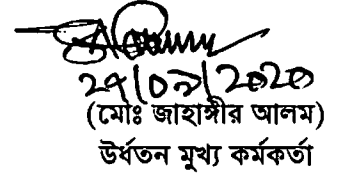 ২৭/০৯/২০২০
(মোঃ জাহাঙ্গীর আলম)
উর্ধতন মুখ্য কর্মকর্তা